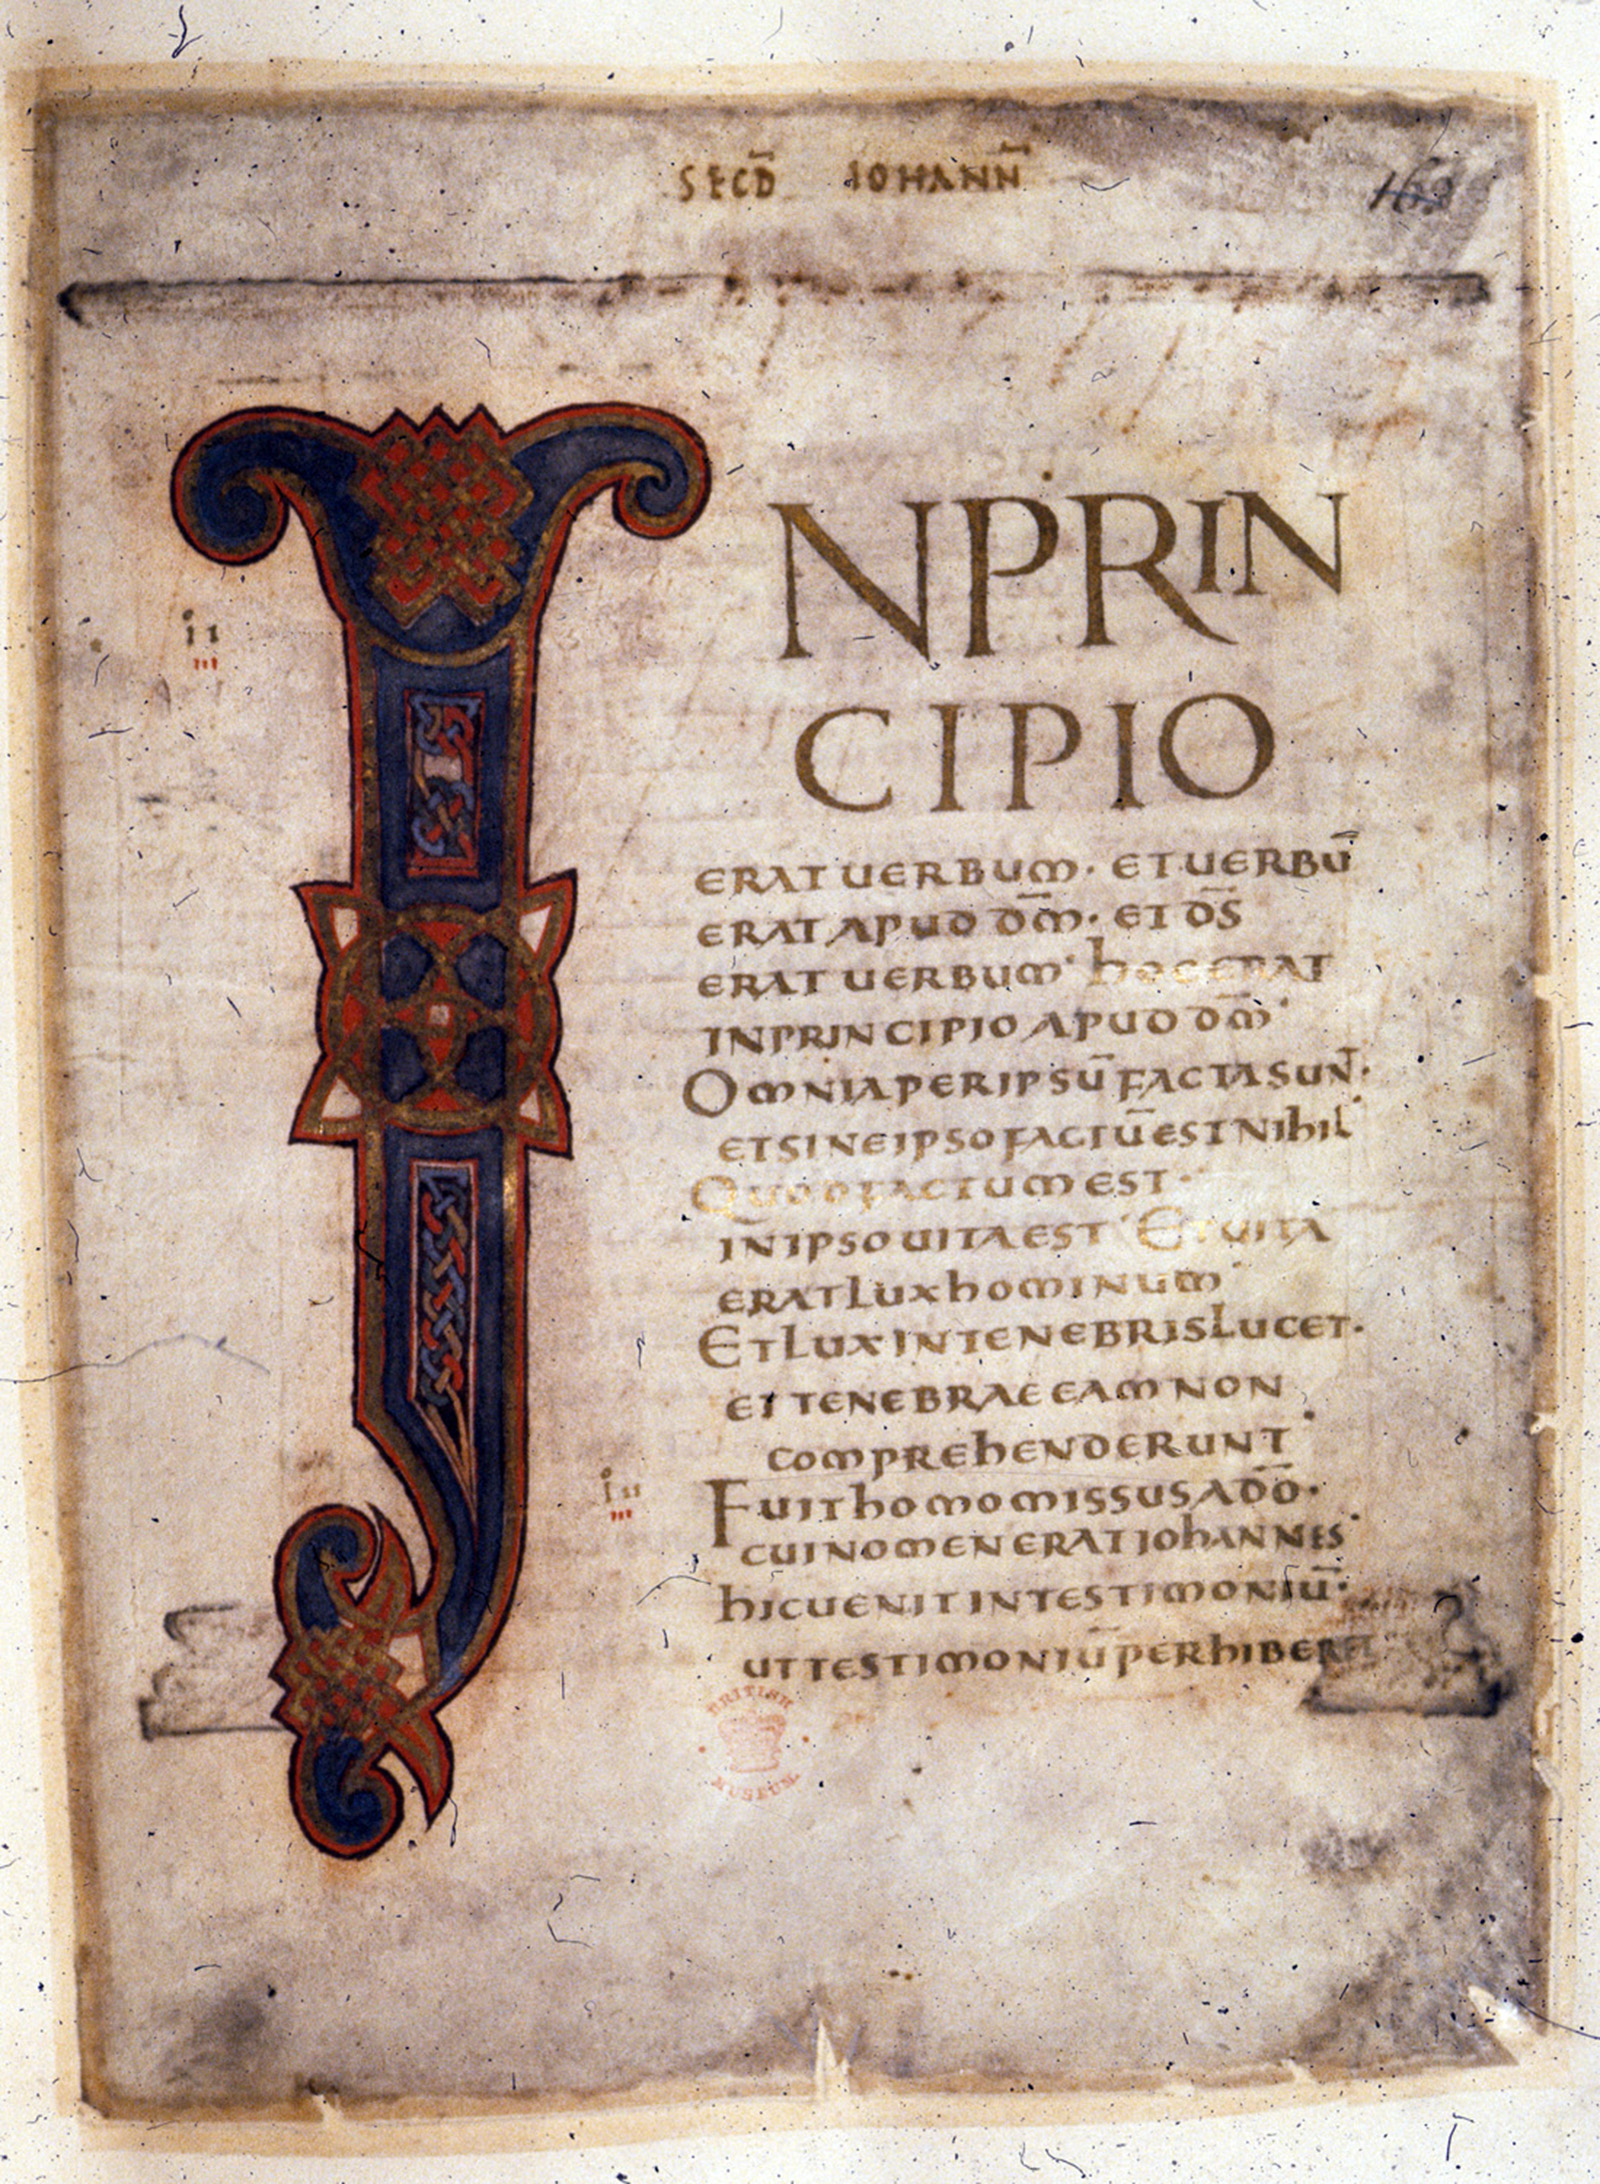 SECD̄ IOHANN̄
162
INPRIN
CIPIO
ERAT UERBUM · ET UERBŪ
ERAT APUD DM̄ · ET DS̄
ERAT UERBUM · hOC ERAT
IN PRINCIPIO APUD DM̄ ·
OMNIA PER IPSŪ FACTA SUNT ·
ET SINE IPSO FACTŪ EST NIhIL
QUOD FACTUM EST ·
IN IPSO UITA EST · ET UITA
ERAT LUX hOMINUM ·
ET LUX IN TENEBRIS LUCET ·
ET TENEBRAE EAM NON
COMPREhENDERUNT ·
FUIT hOMO MISSUS A DŌ ·
CUI NOMEN ERAT IOhANNES ·
hIC UENIT IN TESTIMONIŪ ·
UT TESTIMONIŪ PERhIBERET
BRITISH
MUSEUM